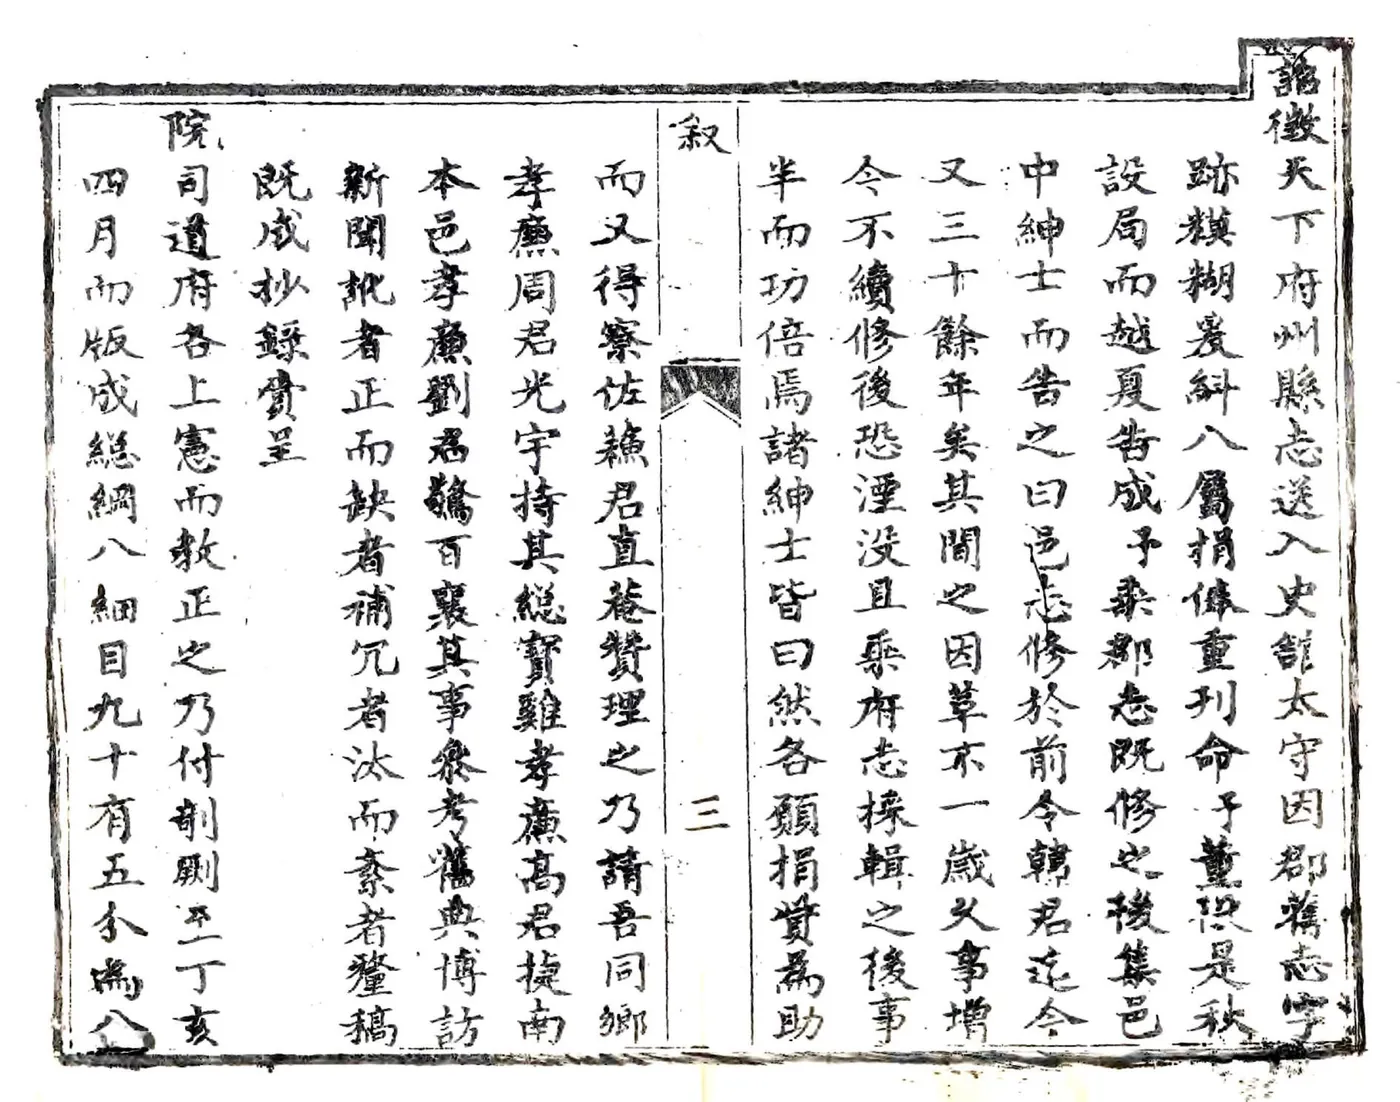 詔徵天下府州縣志送入史館太守因郡舊志字
跡糢糊爰糾八屬捐俸重刊命予董役是秋
設局而越夏告成予乘郡志既修之後集邑
中紳士而告之曰邑志修於前令韓君迄今
又三十餘年矣其間之因革不一歲久事增
今不續修後恐湮没且乘府志採輯之後事
半而功倍焉諸紳士皆曰然各願捐貲爲助
叙
三
而又得寮佐蘓君直菴贊理之乃請吾同鄉
孝廉周君光宇持其緫寳雞孝廉高君捷南
本邑孝廉劉君驚百襄其事叅考舊典博訪
新聞訛者正而缺者補冗者汰而紊者釐稿
既成抄錄賫呈
院司道府各上憲而教正之乃付剞劂至丁亥
四月而版成緫綱八細目九十有五分爲八